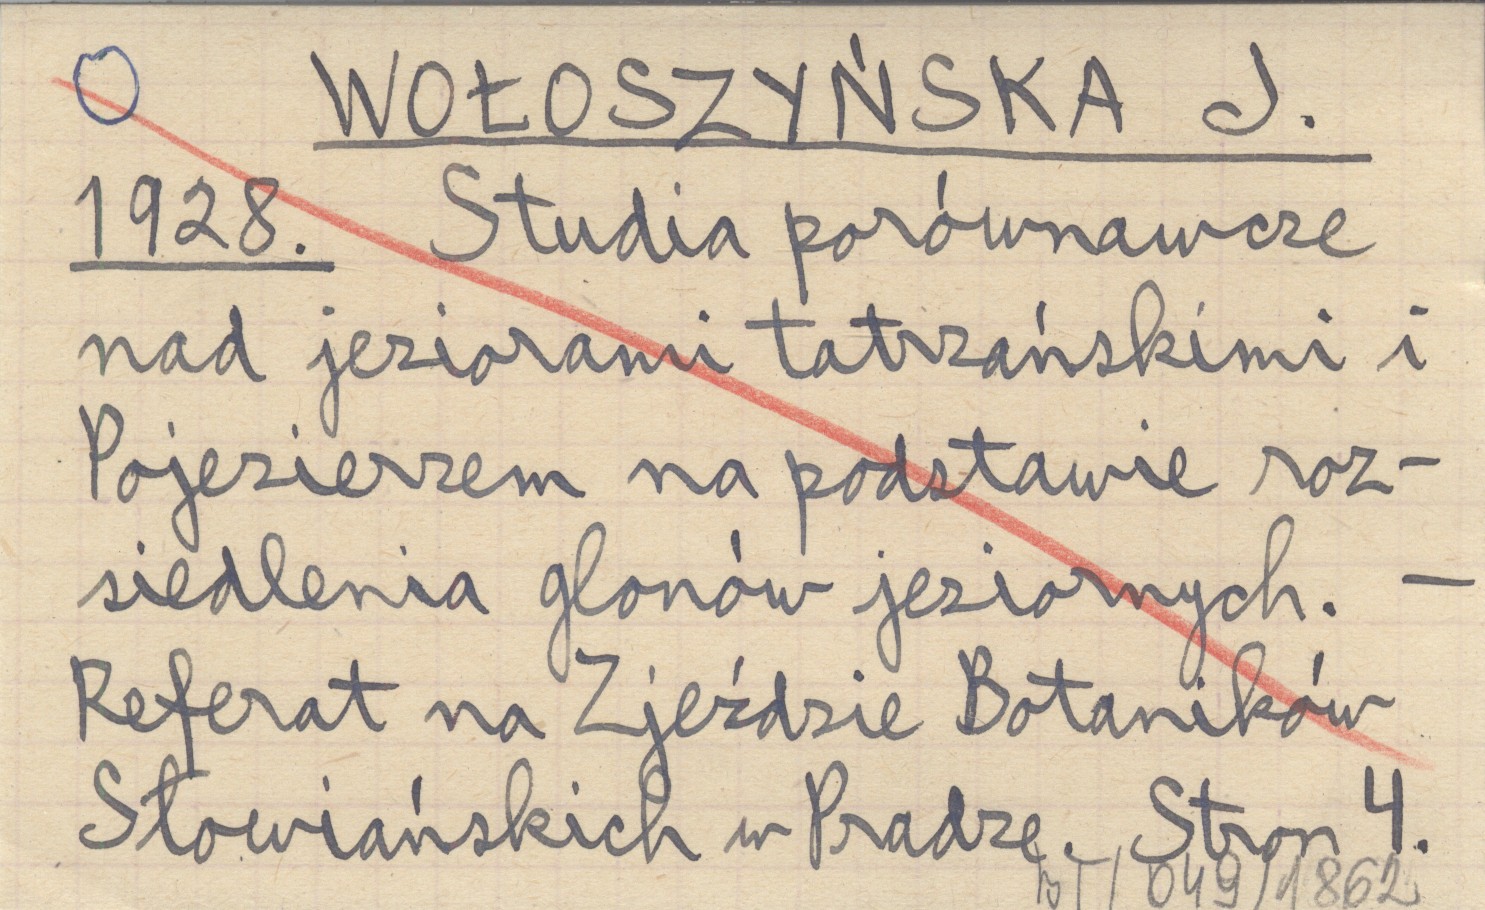 WOŁOSZYŃSKA J.
1928. Studia porównawcze
nad jeziorami tatrzańskimi i
Pojezierzem na podstawie roz-
siedlenia glonów jeziornych. —
Referat na Zjeździe Botaników
Słowiańskich w Pradze. Stron 4.
BT/049/1862